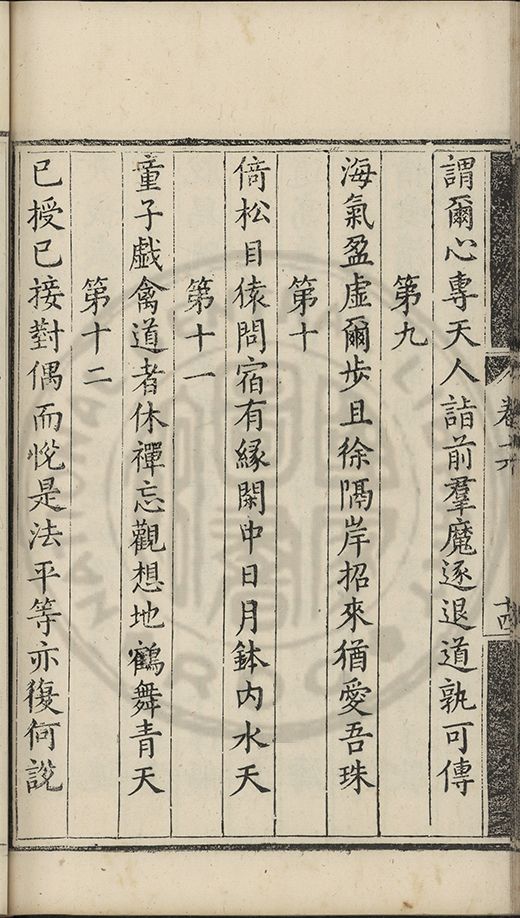 謂爾心專天人詣前羣魔逐退道孰可傳
第九
海氣盈虛爾步且徐隔岸招來猶愛吾珠
第十
倚松目猿問宿有緣閑中日月鉢内水天
第十一
童子戲禽道者休禪忘觀想地鶴舞青天
第十二
已授已接對偶而悅是法平等亦復何說